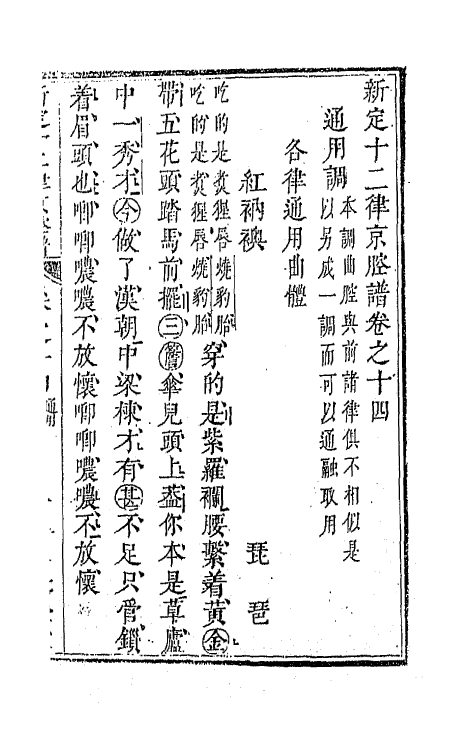 新定十二律京腔譜卷之十四
通用調
本調曲腔與前諸律俱不相似是
以另成一調而可以通融取用
各律通用曲體
紅衲襖 琵琶
吃的是煑猩唇燒豹胎
吃的是煑猩唇燒豹胎
穿的是紫羅襴腰繫着黃金
帶五花頭踏馬前擺三簷傘兒頭上葢你本是草廬
中一秀才今做了漢朝中梁棟才有甚不足只管鎖
着眉頭也唧唧噥噥不放懷唧唧噥噥不放懷